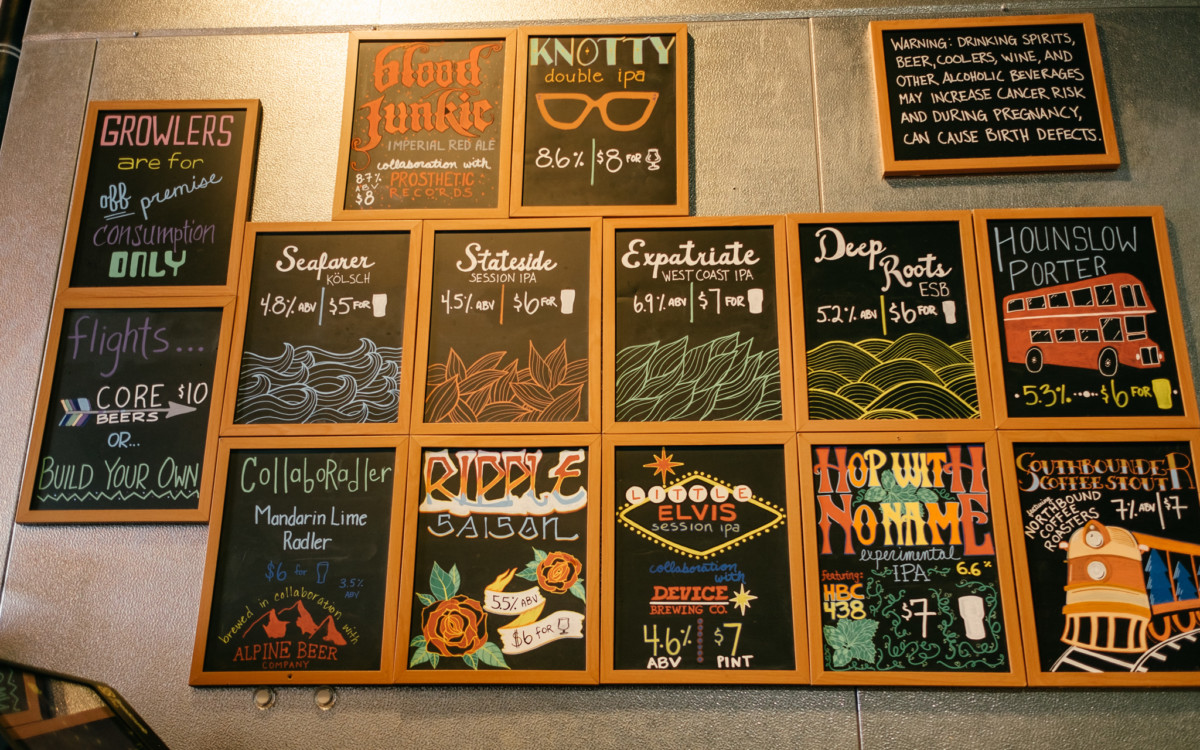 GROWLERS
are for
off premise
consumption
ONLY
flights...
CORE $10
BEERS
OR...
BUILD YOUR OWN
blood
Junkie
IMPERIAL RED ALE
collaboration with
8.7%
ABV
$8
PROSTHETIC
RECORDS
KNOTTY
double ipa
8.6% $8 FOR
WARNING: DRINKING SPIRITS,
BEER, COOLERS, WINE, AND
OTHER ALCOHOLIC BEVERAGES
MAY INCREASE CANCER RISK
AND DURING PREGNANCY,
CAN CAUSE BIRTH DEFECTS.
Seafarer
KÖLSCH
4.8% ABV $5 FOR
Stateside
SESSION IPA
4.5% ABV $6 FOR
Expatriate
WEST COAST IPA
6.9% ABV $7 FOR
Deep
Roots
ESB
5.2% ABV $6 FOR
HOUNSLOW
PORTER
5.3% $6 FOR
CollaboRadler
Mandarin Lime
Radler
$6 for
3.5%
ABV
brewed in collaboration with
ALPINE BEER
COMPANY
RIPPLE
SAISON
5.5% ABV
$6 FOR
LITTLE
ELVIS
session ipa
collaboration
with
DEVICE
BREWING CO.
4.6% $7
ABV PINT
HOP WITH
NO NAME
experimental
IPA 6.6%
featuring:
HBC
438
$7
SOUTHBOUNDER
COFFEE STOUT
NORTHBOUND
COFFEE
ROASTERS
7% ABV $7